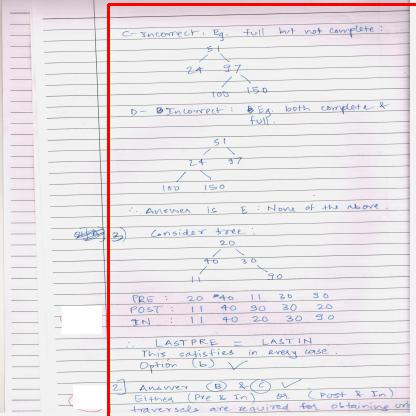 C- Incorrect: Eg. full but not complete:
51
24 97
100 150
D- Incorrect: Eg. both complete &
full.
51
24 97
100 150
∴ Answer is E: None of the above.
3) Consider tree:
20
40 30
11 90
PRE : 20 40 11 30 90
POST: 11 40 90 30 20
IN : 11 40 20 30 90
∴ LASTPRE = LASTIN
This satisfies in every case.
Option (b) ✓
2] Answer (B) & (C) ✓
Either (Pre & In) or (Post & In)
traversals are required for obtaining